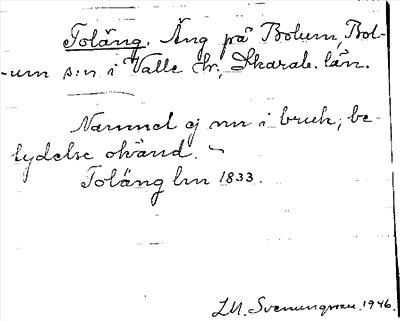 Toläng. Äng på Bolum, Bol-
-um s:n i Valle hr, Skarab. län.
Namnet ej nu i bruk, be-
tydelse okänd. -
Toläng lm 1833.
L.M. Svenungsson. 1946.